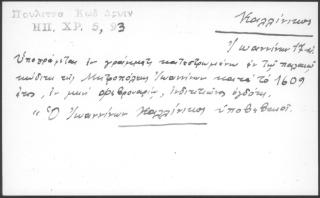 Πουλίτσα Κωδ Ιωαν
ΗΠ. ΧΡ. 5, 93
Καλλίνικος
Ἰωαννίνων 17 αἰ.
Ὑπογράφεται ἐν γράμματι κατεστρωμένῳ ἐν τῷ παλαιῷ
κώδικι τῆς Μητροπόλεως Ἰωαννίνων κατὰ τὸ 1609
ἔτος, ἐν μηνὶ φεβρουαρίῳ, ἰνδικτιῶνος ὀγδόης.
"Ὁ Ἰωαννίνων Καλλίνικος ὑποβεβαιοῖ.